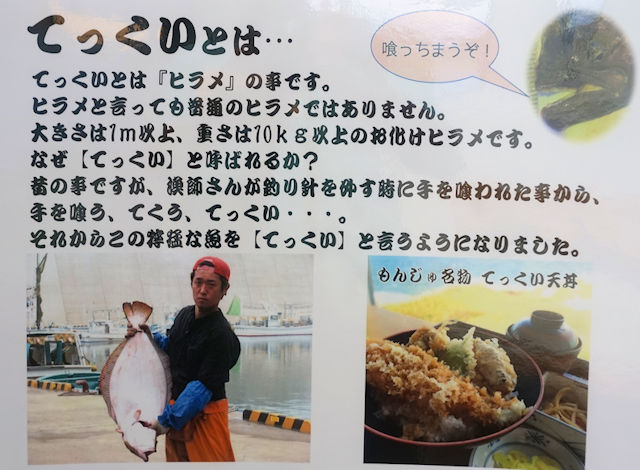 てっくいとは…
喰っちまうぞ！
てっくいとは『ヒラメ』の事です。
ヒラメと言っても普通のヒラメではありません。
大きさは1m以上、重さは10kg以上のお化けヒラメです。
なぜ【てっくい】と呼ばれるか？
昔の事ですが、漁師さんが釣り針を外す時に手を喰われた事から、
手を喰う、てくう、てっくい・・・。
それからこの獰猛な魚を【てっくい】と言うようになりました。
もんじゅ名物 てっくい天丼